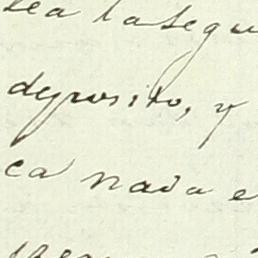 sea la segu
deposito, y
ca nada e